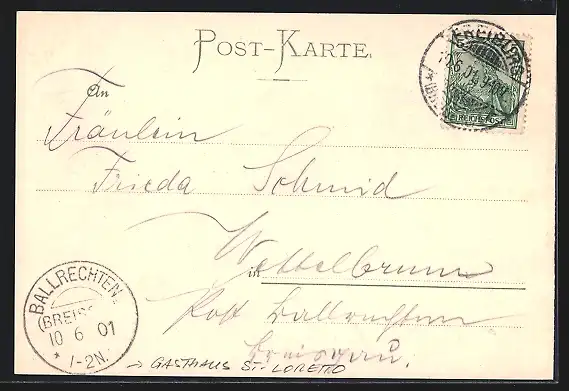 POST-KARTE.
FREIBURG
REICHSPOST
An
Fräulein
Frieda Schmid
Wettelbrunn
in
Post Ballrechten
Breisgau.
BALLRECHTEN
(BREISG
10 6 01
* 1-2N.
→ GASTHAUS ST. LORETTO